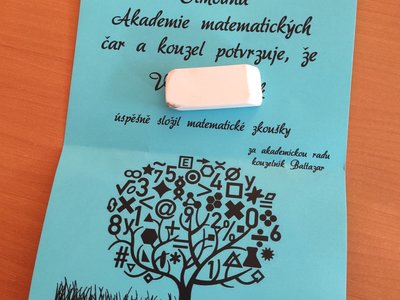 Akademie matematických
čar a kouzel potvrzuje, že
úspěšně složil matematické zkoušky
za akademickou radu
kouzelník Baltazar